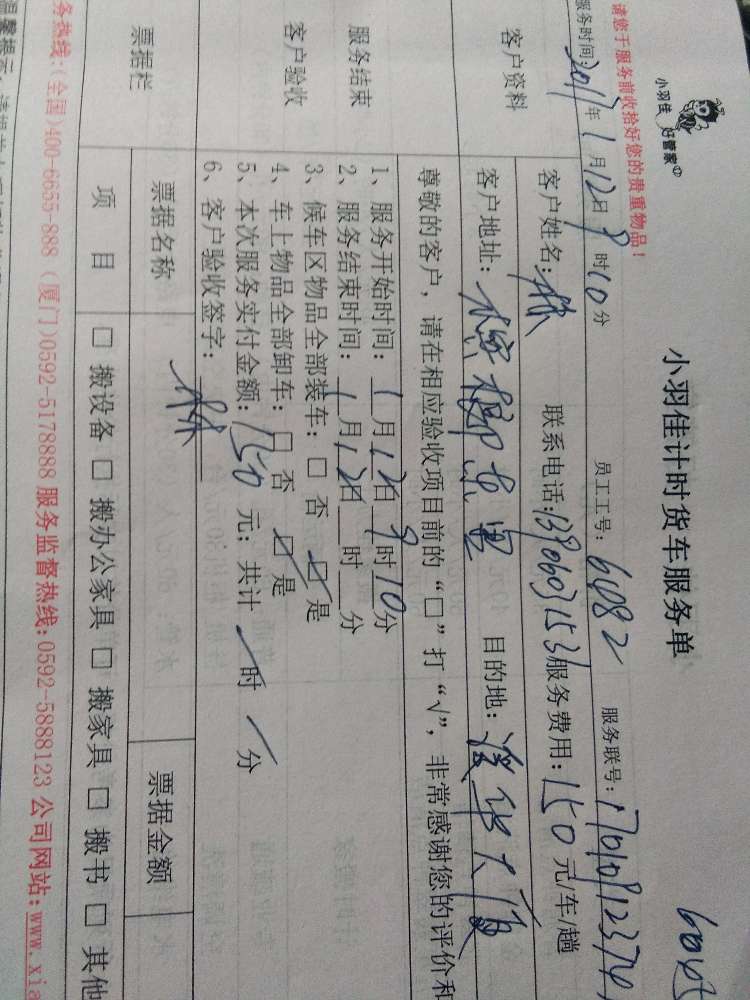 小羽佳 好管家
小羽佳计时货车服务单
请您于服务前收拾好您的贵重物品！
服务时间：2017年1月12日9时10分 员工工号：6082 服务联号：
客户资料
客户姓名：林 联系电话： 服务费用：150元/车/趟
客户地址： 目的地：
尊敬的客户，请在相应验收项目前的“□”打“√”，非常感谢您的评价和
服务结束
客户验收
1、服务开始时间：1月12日9时10分
2、服务结束时间：1月12日 时 分
3、候车区物品全部装车：□ 否 ☑ 是
4、车上物品全部卸车：□ 否 ☑ 是
5、本次服务实付金额：150元；共计 时 分
6、客户验收签字：林
票据栏
票据名称 票据金额
项目 □ 搬设备 □ 搬办公家具 □ 搬家具 □ 搬书 □ 其他
务热线：(全国)400-6655-888 (厦门)0592-5178888 服务监督热线：0592-5888123 公司网站：www.xia